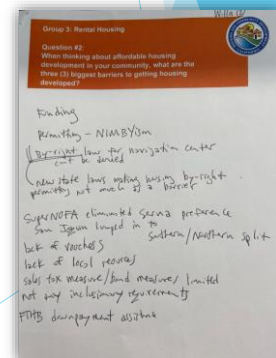 Willa
Group 3: Rental Housing
Question #2:
When thinking about affordable housing
development in your community, what are the
three (3) biggest barriers to getting housing
developed?
Funding
Permitting - NIMBYism
By-right law for navigation center
can't be denied
new state laws making housing by-right
permitting not much of a barrier
SuperNOFA eliminated Serna preference
San Joaquin lumped in to
Southern/Northern split
lack of vouchers
lack of local resources
sales tax measure/bond measures limited
not any inclusionary requirements
FTHB downpayment assistance